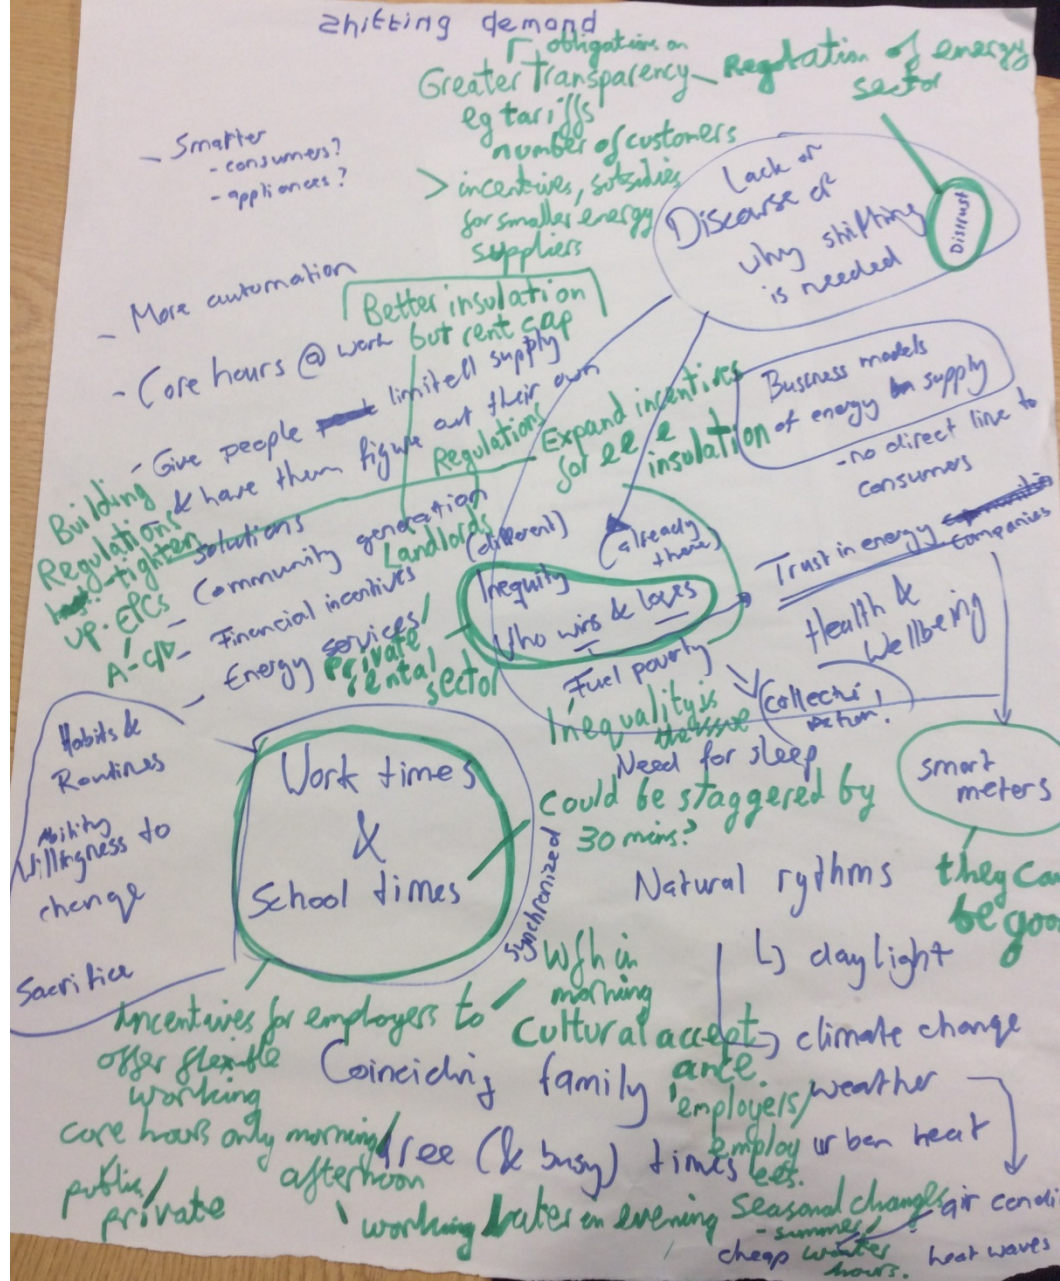 shifting demand
obligations on
Greater Transparency — Regulation of energy
sector
eg tariffs
number of customers
> incentives, subsidies
for smaller energy
suppliers
- Smarter
- consumers?
- appliances?
Lack of
Discourse of
why shifting
is needed
Distrust
- More automation
Better insulation
but rent cap
- Core hours @ work
- Give people limited supply
& have them figure out their own
solutions
Regulations
Expand incentives
for ee e
insulation
Business models
of energy supply
- no direct line to
consumers
Building
Regulations
- tighten
up. EPCs
A - C/D
- Community generation
Landlords
- Financial incentives
- Energy services/
private
rental
sector
(different)
(already
there)
Inequity
Who wins & loses
Fuel poverty
Inequality is
the issue
Trust in energy companies
Health &
Wellbeing
Collective
action.
Need for sleep
smart
meters
they can
be good
Habits &
Routines
Ability
Willingness to
change
Sacrifice
Work times
&
School times
synchronized
could be staggered by
30 mins?
Natural rythms
↳ daylight
↳ climate change
weather
urban heat
air condi
heat waves
Wfh in
morning
Cultural accept
ance.
employers/
employ
ees.
Incentives for employers to
offer flexible
working
core hours only morning/
afternoon
public/
private
Coinciding family
free (& busy) times
working later in evening
seasonal changes
- summer/
winter
hours.
cheap